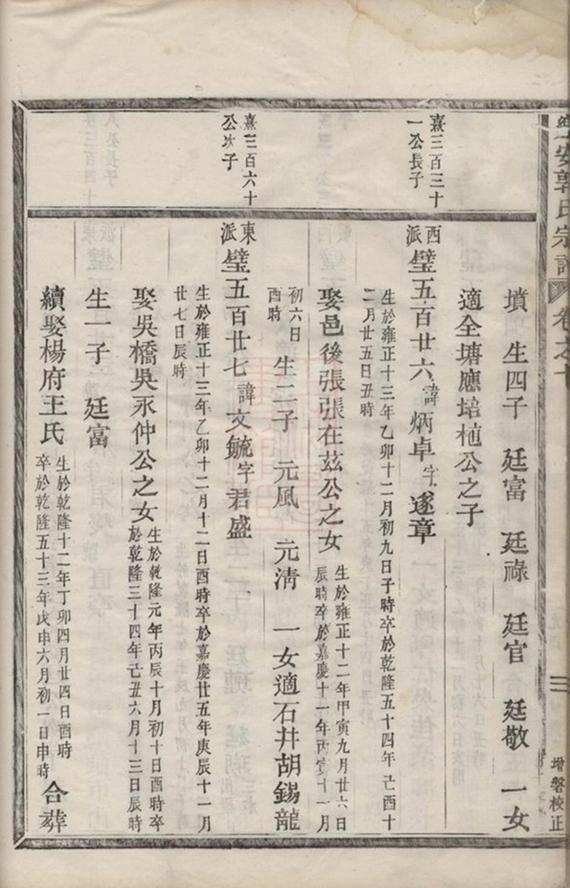 郭氏宗譜
卷之十
三
增磐校正
墳 生四子 廷富 廷祿 廷官 廷敬 一女
適全塘應培植公之子
熹三百三十
一公長子
西派 璧五百廿六 諱炳卓 字遂章
生於雍正十三年乙卯十二月初九日子時卒於乾隆五十四年己酉十
二月廿五日丑時
娶邑後張張在茲公之女
生於雍正十二年甲寅九月廿六日
辰時卒於嘉慶十一年丙寅十一月
初六日
酉時
生二子 元風 元清 一女適石井胡錫龍
熹三百六十
公次子
東派 璧五百廿七 諱文毓 字君盛
生於雍正十三年乙卯十二月十二日酉時卒於嘉慶廿五年庚辰十一月
廿七日辰時
娶吳橋吳永仲公之女
生於乾隆元年丙辰十月初十日酉時卒
於乾隆三十四年己丑六月十三日辰時
生一子 廷富
續娶楊府王氏
生於乾隆十二年丁卯四月廿四日酉時
卒於乾隆五十三年戊申六月初一日申時
合葬